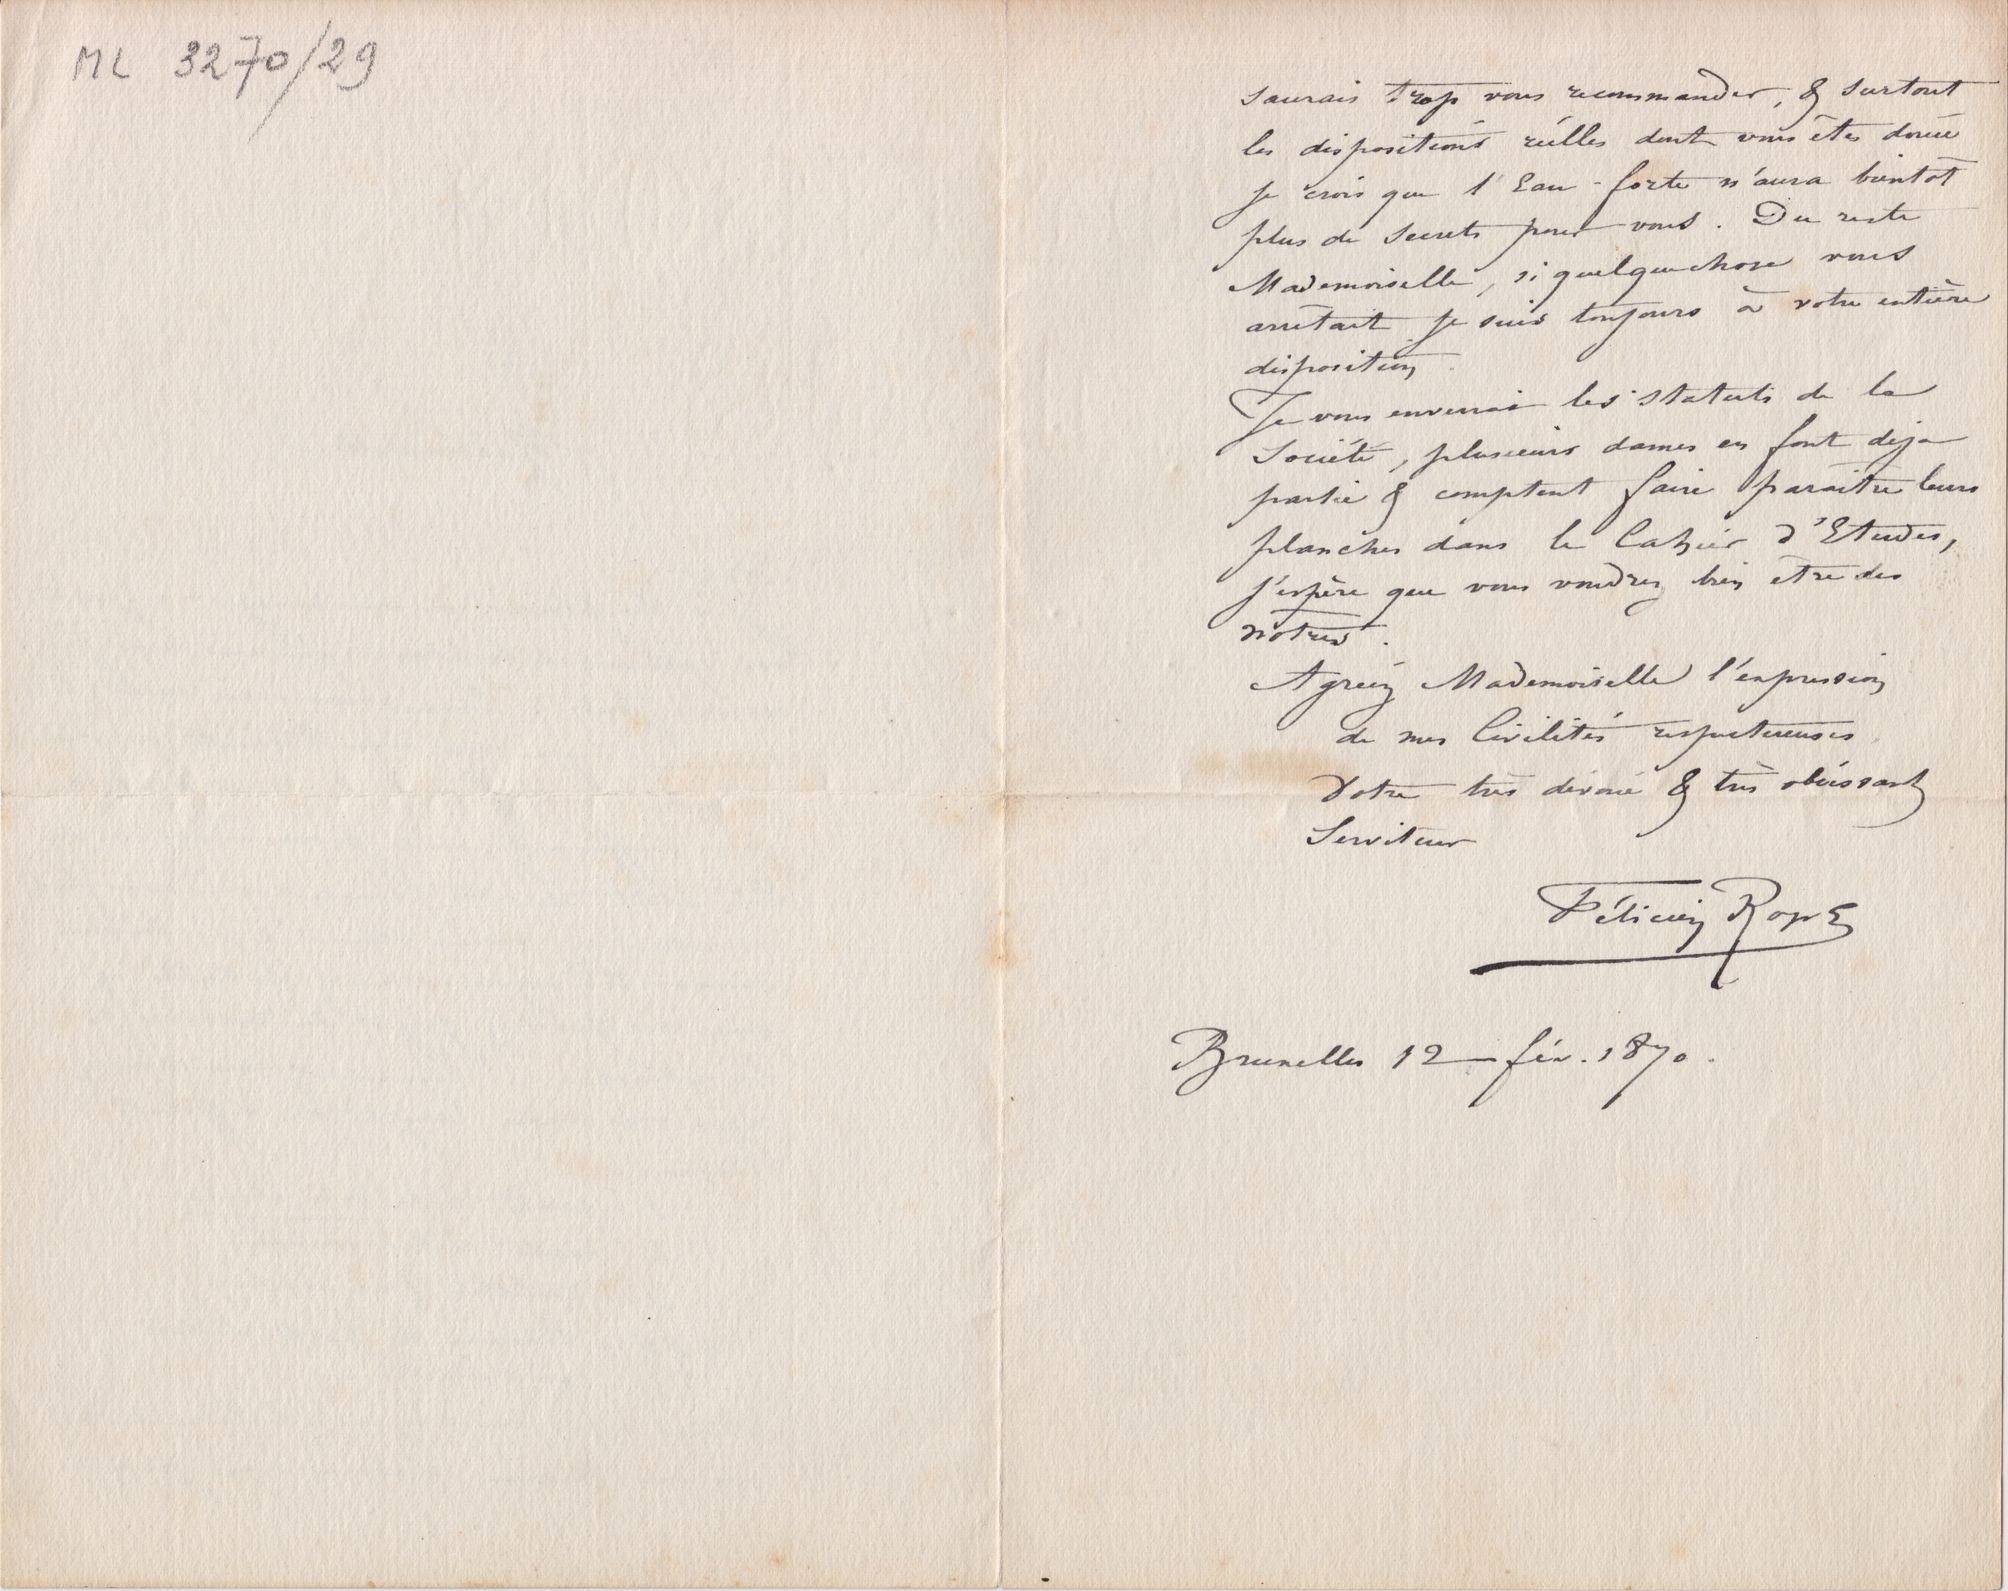 ML 3270/29
saurais trop vous recommander, & surtout
les dispositions réelles dont vous êtes douée
je crois que l'Eau-forte n'aura bientôt
plus de secrets pour vous. Du reste
Mademoiselle, si quelquechose vous
arrêtait je suis toujours à votre entière
disposition.
Je vous enverrai les statuts de la
Société, plusieurs dames en font déja
partie & comptent faire paraître leurs
planches dans le Cahier d'Etudes,
j'espère que vous voudrez bien être des
nôtres.
Agréez Mademoiselle l'expression
de mes Civilités respectueuses.
Votre très dévoué & très obéissant
Serviteur
Félicien Rops
Bruxelles 12 fév. 1870.